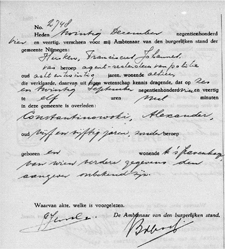 No. 2/48
Heden twintig December negentienhonderd
vier en veertig, verscheen voor mij Ambtenaar van den burgerlijken stand der
gemeente Nijmegen:
Franciscus Johannes
van beroep agent-rechercheur van politie
oud wonende alhier,
die verklaarde daarvan uit eigen wetenschap kennis dragende, dat op zes
en twintig September negentienhonderd vier en veertig
te elf uur minuten
in deze gemeente is overleden:
Constantinowski, Alexander,
oud vijf en vijftig jaren, zonder beroep
geboren en wonende te 's Gravenhage
van wien verdere gegevens den
aangever onbekend zijn.
Waarvan akte, welke is voorgelezen.
De Ambtenaar van den burgerlijken stand.